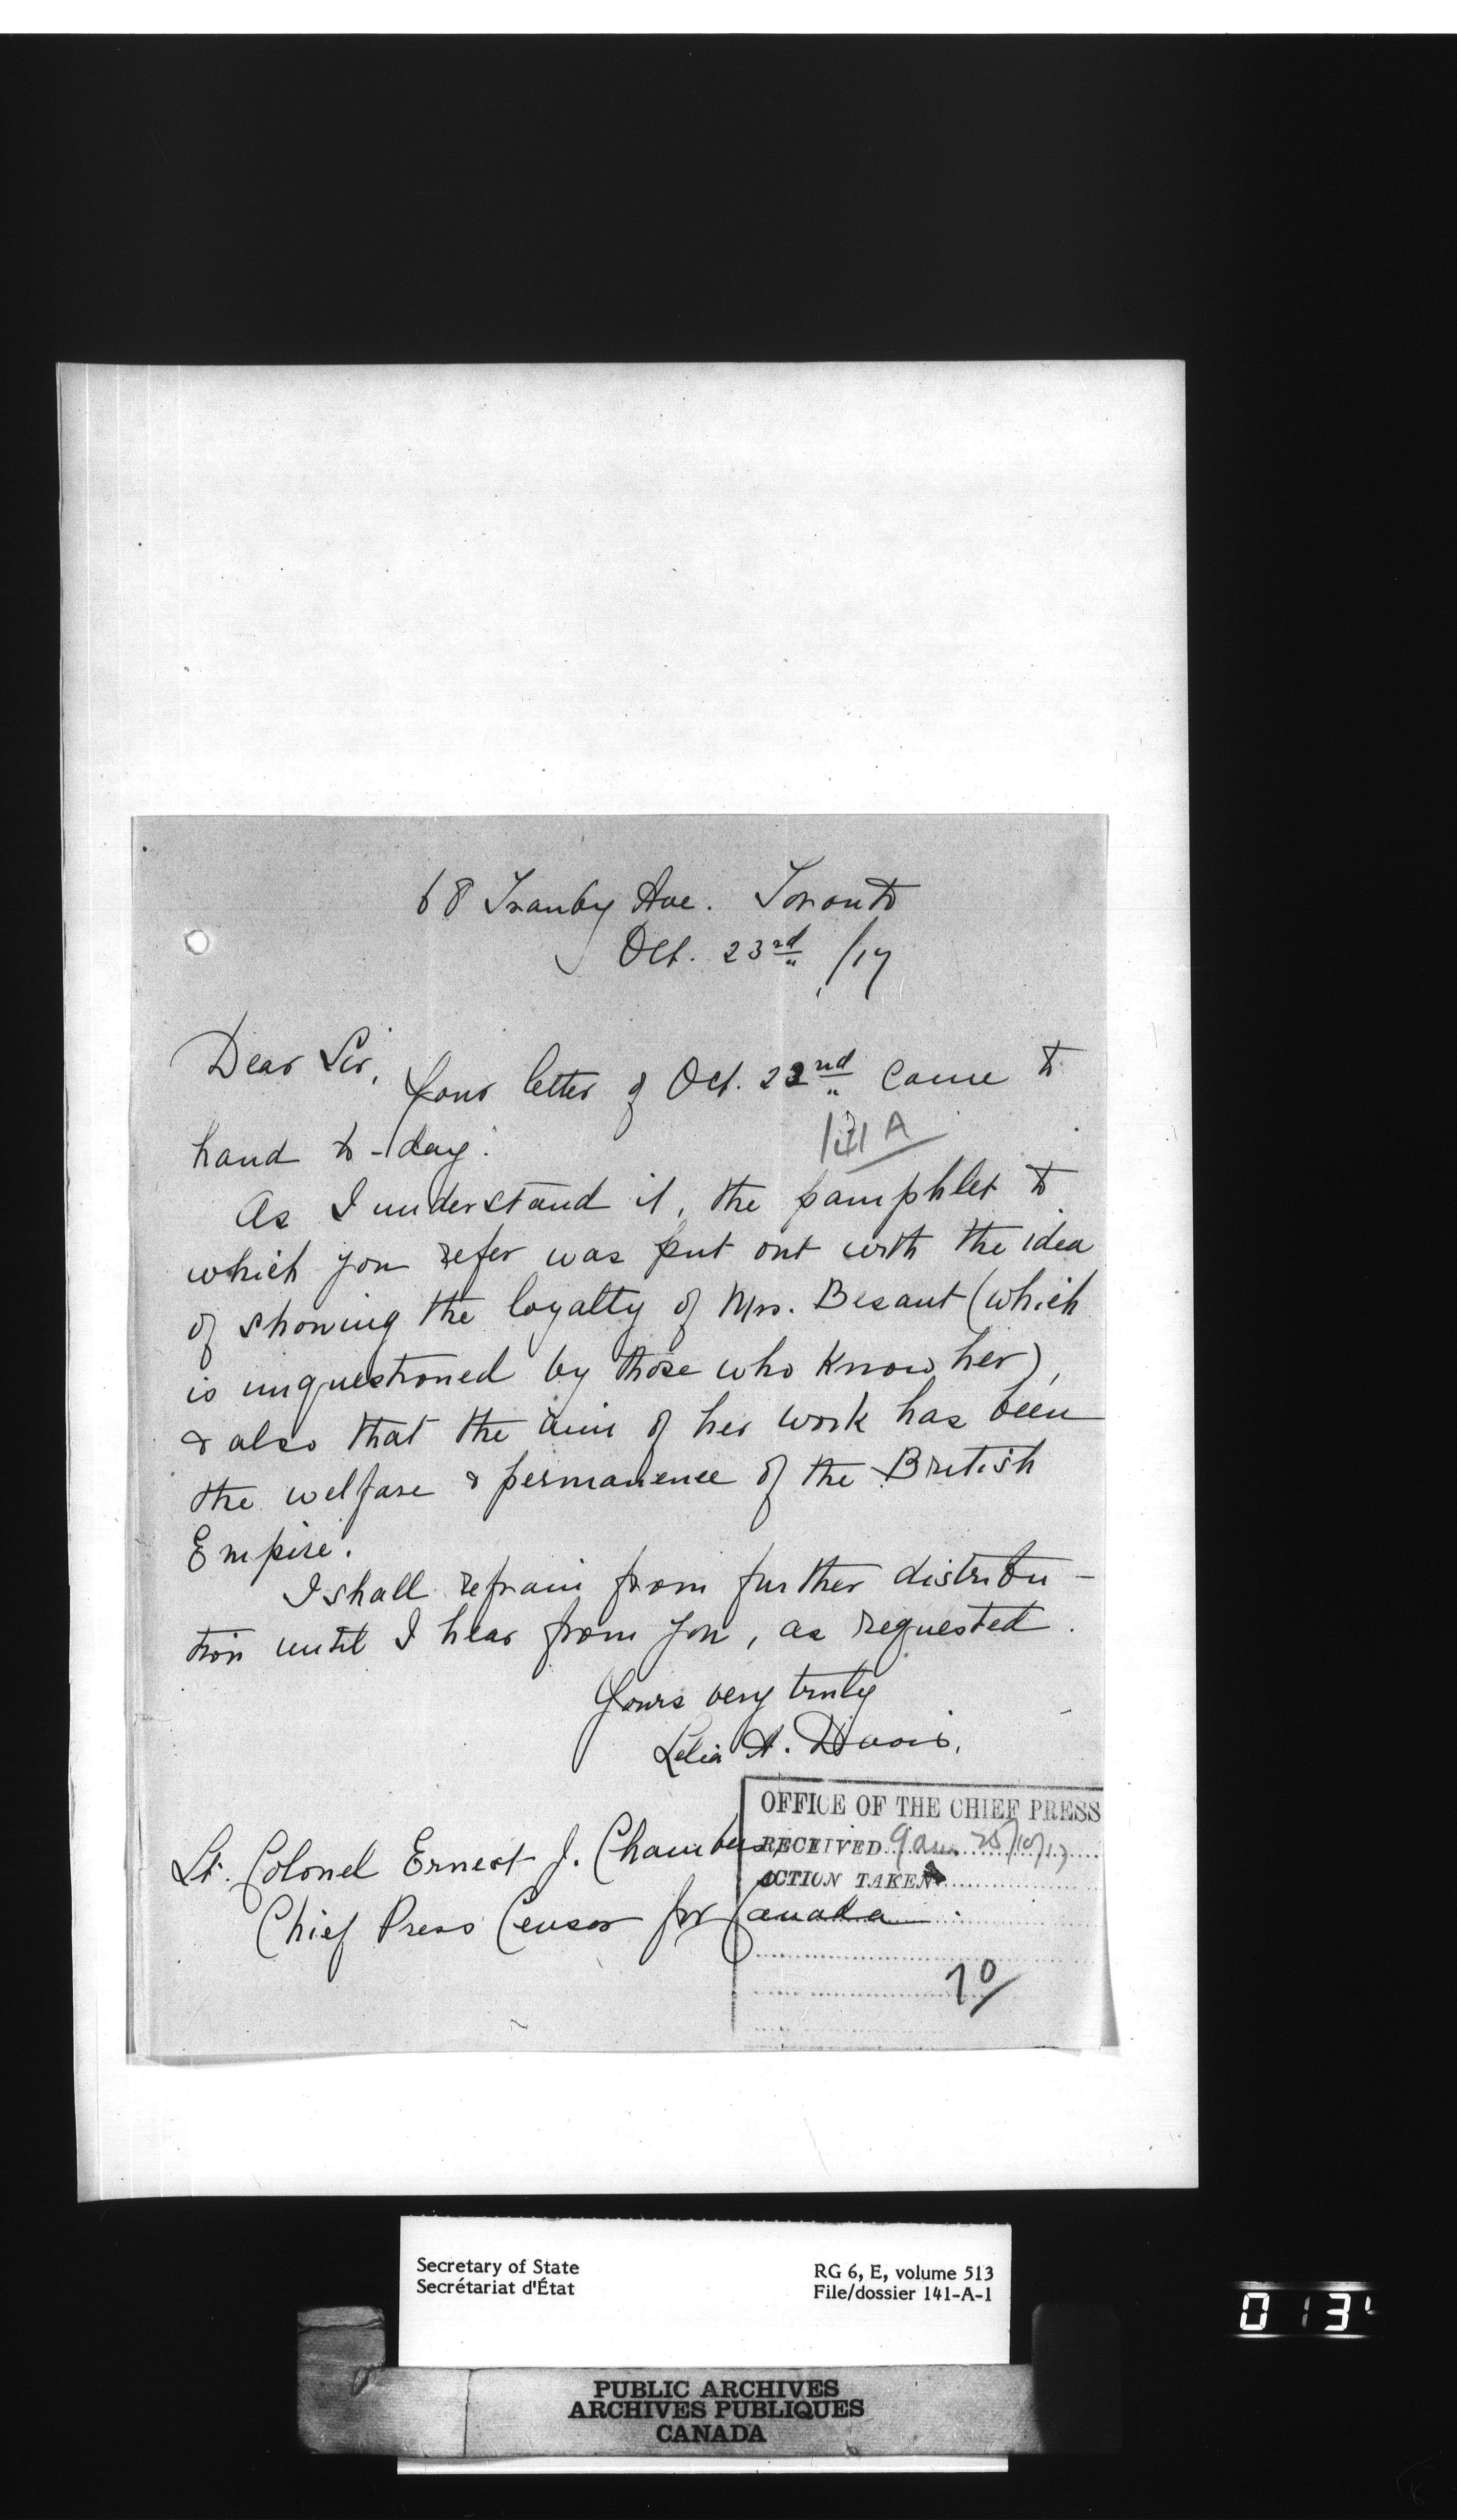 68 Tranby Ave. Toronto
Oct. 23rd /17
Dear Sir,
Your letter of Oct. 22nd came to
hand to-day.
A
As I understand it, the pamphlet to
which you refer was put out with the idea
of showing the loyalty of Mrs. Besant (which
is unquestioned by those who know her),
& also that the aim of her work has been
the welfare & permanence of the British
Empire.
I shall refrain from further distribu-
tion until I hear from you, as requested.
Yours very truly
Lelia A. Davis.
OFFICE OF THE CHIEF PRESS
RECEIVED 9 am. 25/10/17
ACTION TAKEN
Lt. Colonel Ernest J. Chambers,
Chief Press Censor for Canada.
70
Secretary of State
Secrétariat d'État
RG 6, E, volume 513
File/dossier 141-A-1
PUBLIC ARCHIVES
ARCHIVES PUBLIQUES
CANADA
013